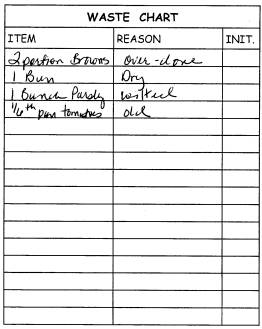 WASTE CHART
ITEM REASON INIT.
2 portion Browns over-done
1 Bun Dry
1 Bunch Parsly wilted
1/6th pan tomatoes old